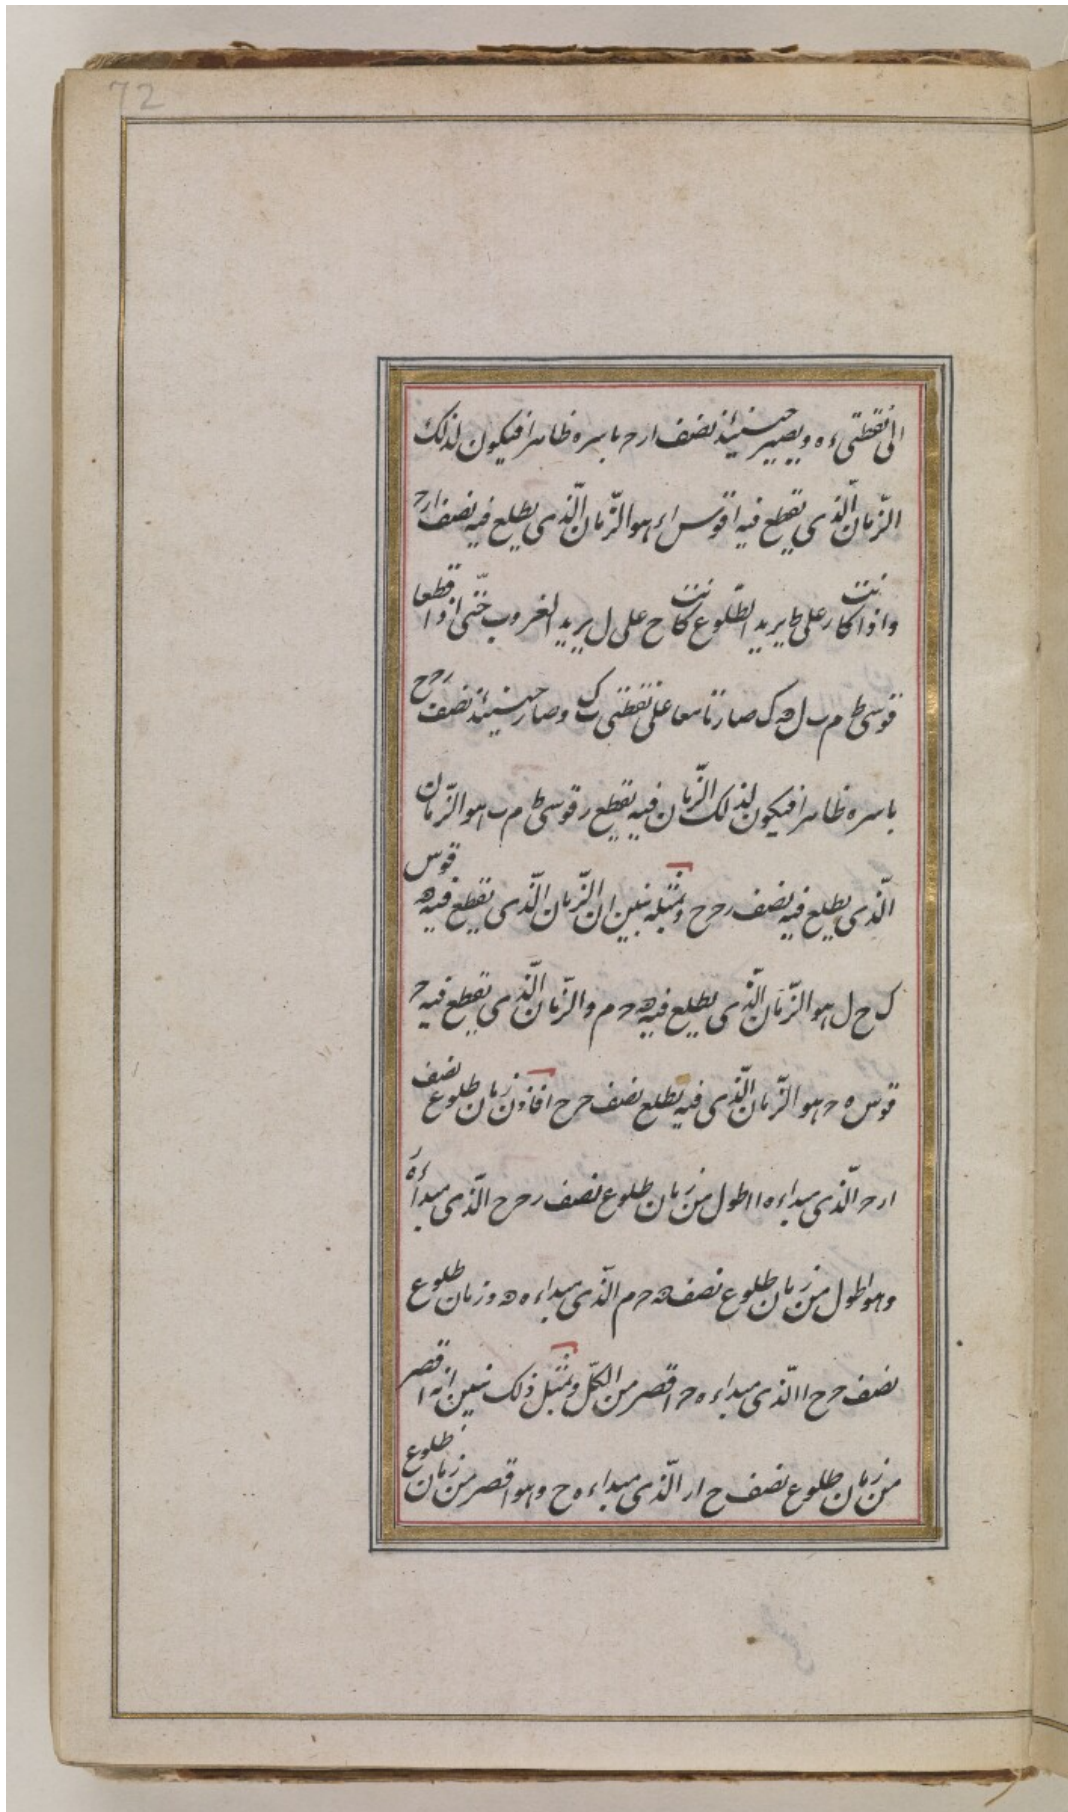 72
الى نقطتى ء ه ويصير حينئذ نصف ا ر ح باسره ظاهرا فيكون لذلك
الزّمان الّذى يقطع فيه ا قوس ا ء هو الزّمان الّذى يطلع فيه نصف ا ر ح
واذا كانت ر على ط يريد الطّلوع كانت ح على ل يريد الغروب حتّى اذا قطعا
قوسى ط م ب ل ه ك صارتا معا على نقطتى ب ك وصار حينئذ نصف ر ح ح
باسره ظاهرا فيكون لذلك الزّمان فيه يقطع ر قوسى ط م ب هو الزّمان
الّذى يطلع فيه نصف ر ح ح وبمثله نبين ان الزّمان الّذى يقطع فيه ه قوس
ك ح ل هو الزّمان الّذى يطلع فيه ه ح م والزّمان الّذى يقطع فيه ح
قوس ه ح هو الزّمان الّذى فيه يطلع نصف ح ح ا فاذن زمان طلوع نصف
ا ر ح الّذى مبداءه ا اطول من زمان طلوع نصف ر ح ح الّذى مبداءه ر
وهو اطول من زمان طلوع نصف ه ح م الّذى مبداءه ه وزمان طلوع
نصف ح ح ا الّذى مبداءه ح اقصر من الكلّ وبمثل ذلك نبين انه اقصر
من زمان طلوع نصف ح ا ر الّذى مبداءه ح وهو اقصر من زمان طلوع